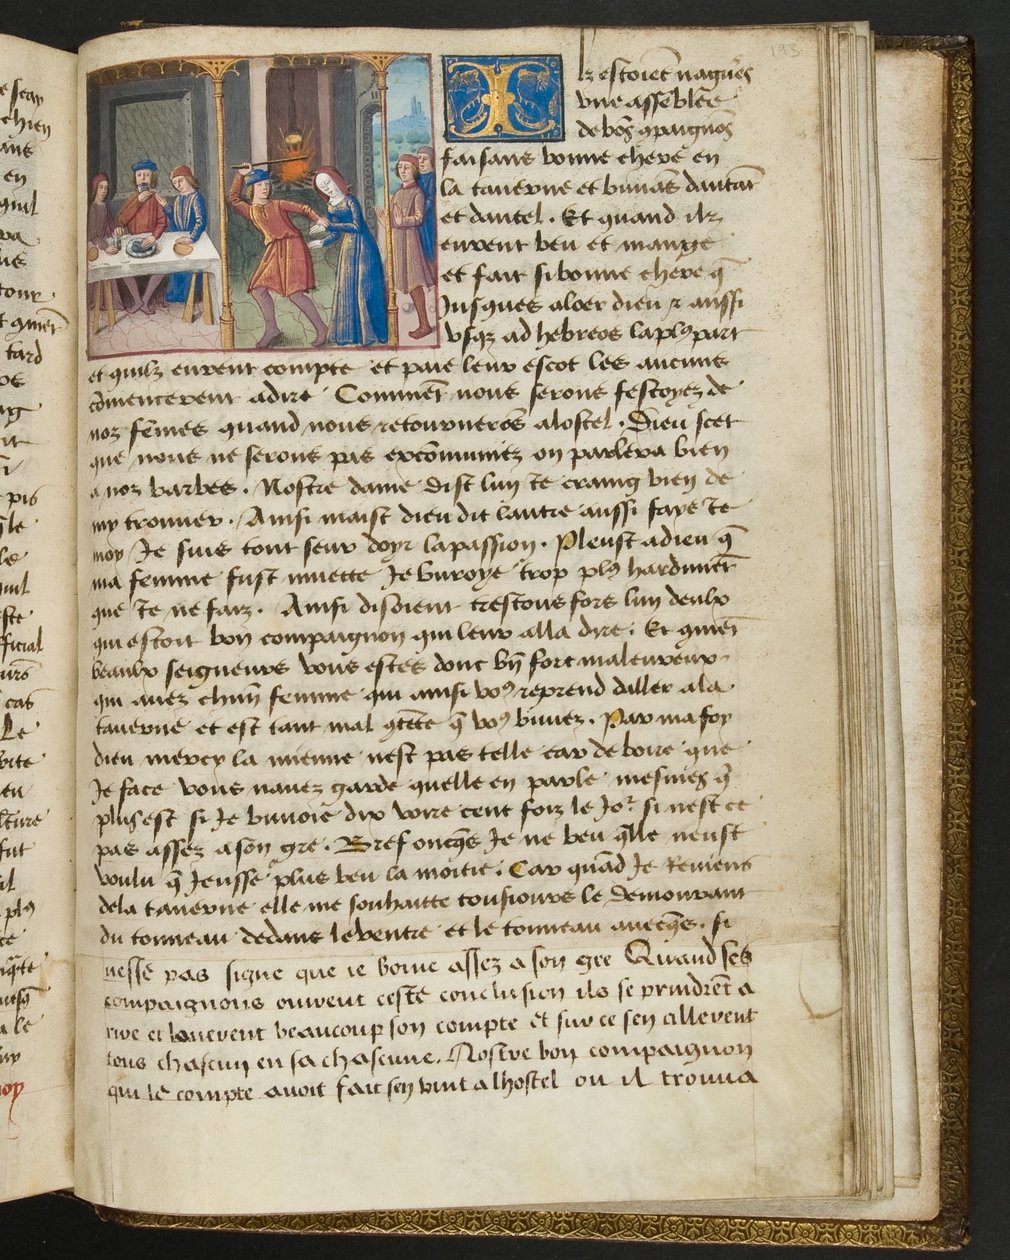 193
Ilz estoiēt nagueres
vne assēblēe
de bōs 9paignōs
faisans bonne chere en
la tauerne et buuās dautāt
et dautel . Et quand ilz
eurent beu et mangē
et fait si bonne chere q̄
Jusques aloer dieu & aussi
vsqz ad hebreos la pl9part
et quilz eurent compte et paie leur escot les aucuns
cōmencerent a dire Commēt nous serons festoyez de
noz fēmes quand nous retournerōs alostel . Dieu scet
que nous ne serons pas excōmuniez on parlera bien
a noz barbes . Nostre dame dist lun Je craing bien de
my trouuer . Ainsi maist dieu dit lautre aussi faye Je
moy Je suis tout seur doyr la passion . Pleust a dieu q̄
ma femme fust muette Je buroye trop pl9 hardimēt
que Je ne faiz . Ainsi disoient trestous fors lun deulx
qui estoit bon compaignon qui leur alla dire . Et 9mēt
beaulx seigneurs vous estes donc bn̄ fort maleureux
qui auez chūn femme qui ainsi vo9 reprend daller a la
tauerne et est tant mal 9tēte q̄ vo9 buuez . Par ma foy
dieu mercy la mienne nest pas telle car de boire que
Je face vous nauez garde quelle en parle mesmes q̄
plus est si Je buuoie dix voire cent foiz le Jor si nest ce
pas assez a son gre . Bref oncq̄s Je ne beu q̄lle neust
voulu q̄ Jeusse plus beu la moitie . Car quād Je Reuiens
dela tauerne elle me souhaitte tousiours le demourant
du tonneau dedans le ventre et le tonneau auecq̄s . si
nesse pas signe que ie boiue assez a son gre Quand ses
compaignons ouirent ceste conclusion ils se prindrēt a
rire et louerent beaucoup son compte et sur ce sen allerent
tous chascun en sa chascune . Nostre bon compaignon
qui le compte auoit fait sen vint a lhostel ou il trouua